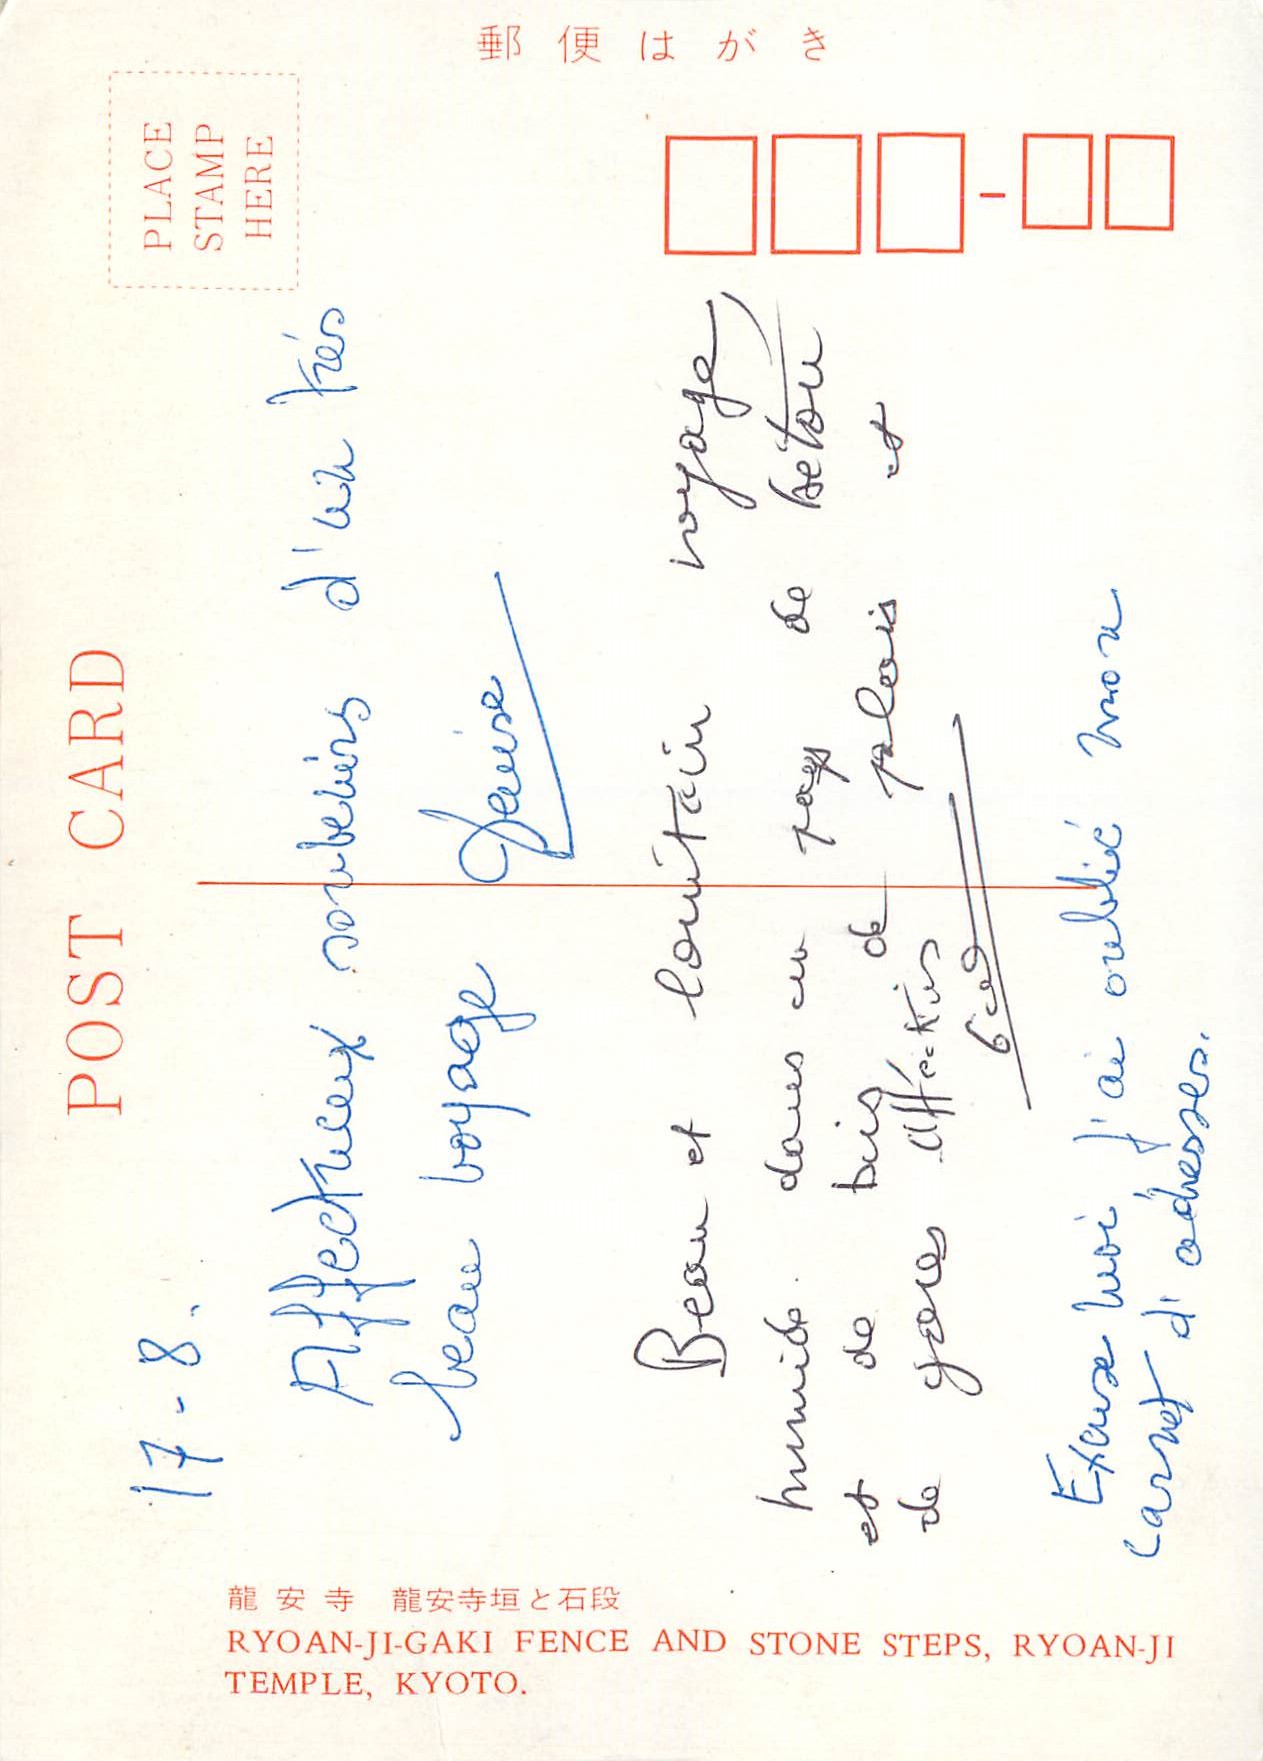 郵便はがき
PLACE
STAMP
HERE
POST CARD
17-8.
Affectueux souvenirs d'un très
beau voyage
Denise
Beau et lointain voyage
humide. dans un pays de béton
et de bois de palais et
de gares affectus
Excuse moi j'ai oublié mon
carnet d'adresses.
龍安寺 龍安寺垣と石段
RYOAN-JI-GAKI FENCE AND STONE STEPS, RYOAN-JI
TEMPLE, KYOTO.